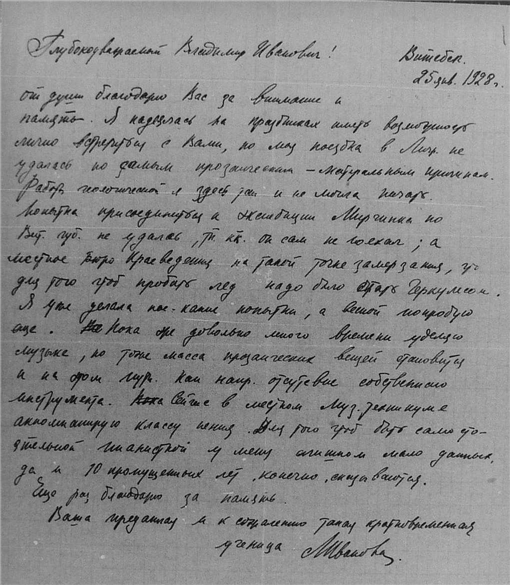 Глубокоуважаемый Владимир Иванович!
Витебск.
25 янв. 1928 г.
от души благодарю Вас за внимание и
память. Я надеялась на праздниках иметь возможность
лично встретиться с Вами, но моя поездка в Лнгр. не
удалась по самым прозаическим – материальным причинам.
Работы геологической я здесь так и не могла начать.
Попытка присоединиться к экспедиции Мирчинка по
Вит. губ. не удалась, т. к. он сам не поехал; а
местное Бюро Краеведения на такой точке замерзания, что
для того чтоб пробить лед надо было стать Геркулесом.
Я уже делала кое-какие попытки, а весной попробую
еще. Пока же довольно много времени уделяю
музыке, но тоже масса прозаических вещей становится
и на этом пути. Как напр. отсутствие собственного
инструмента. Сейчас в местном Муз. техникуме
аккомпанирую классу пения. Для того чтоб быть самосто-
ятельной пианисткой у меня слишком мало данных,
да и 10 пропущенных лет, конечно, сказываются.
Еще раз благодарю за память.
Ваша преданная и к сожалению такая кратковременная
ученица МИванова